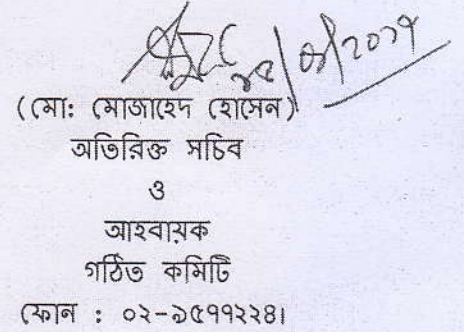 (মো: মোজাহেদ হোসেন)
অতিরিক্ত সচিব
ও
আহবায়ক
গঠিত কমিটি
ফোন : ০২-৯৫৭৭২২৪।